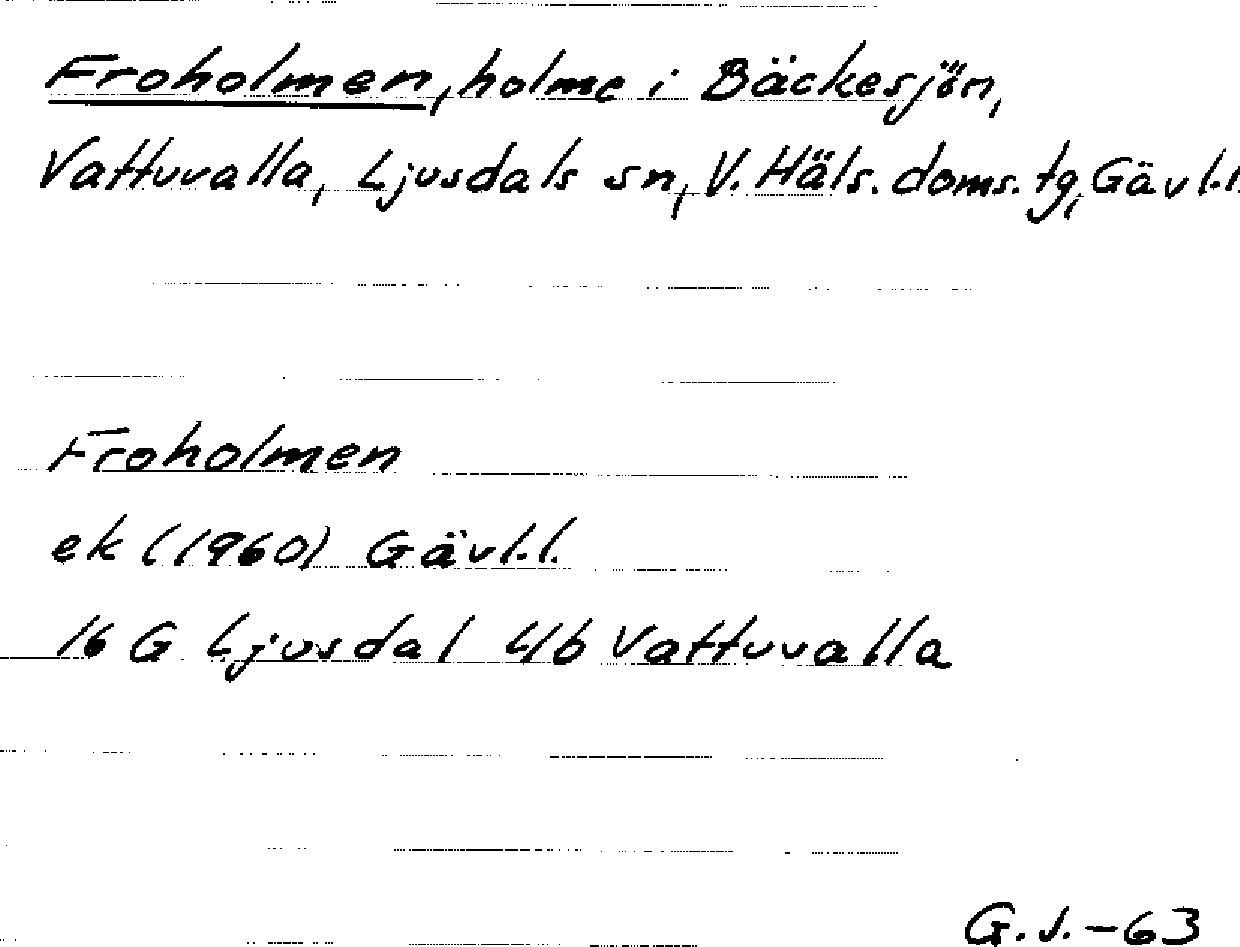 Froholmen, holme i Bäckesjön,
Vattuvalla, Ljusdals sn, V. Häls. doms. tg, Gävl.l.
Froholmen
ek (1960) Gävl.l.
16 G Ljusdal 4b Vattuvalla
G.J.-63